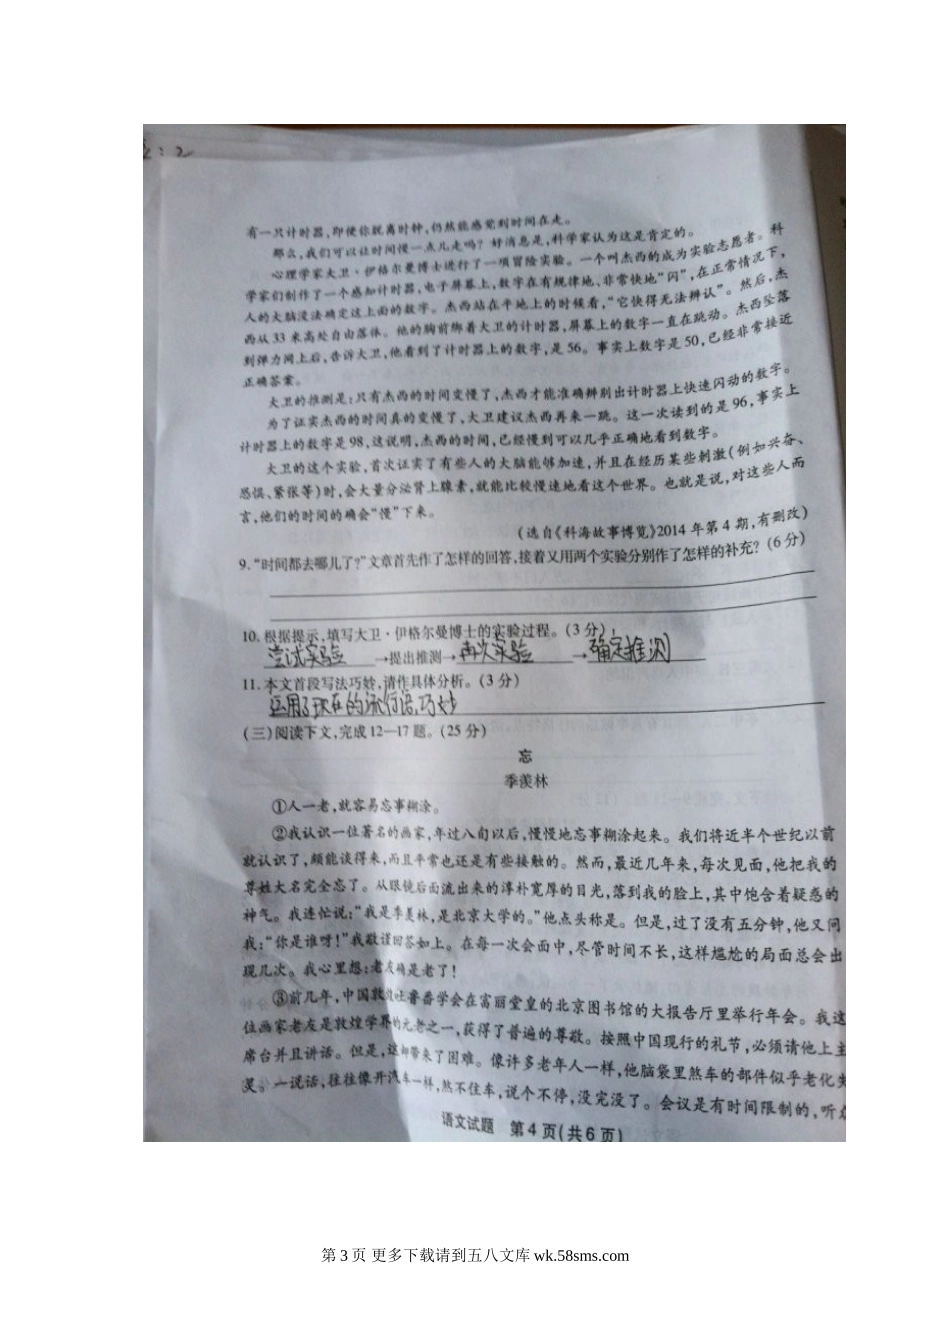 有一只计时器,即使你脱离时钟,仍然能感觉到时间在走。
那么,我们可以让时间慢一点儿走吗?好消息是,科学家认为这是肯定的。
心理学家大卫·伊格尔曼博士进行了一项冒险实验。一个叫杰西的成为实验志愿者。科
学家们制作了一个感知计时器,电子屏幕上,数字在有规律地、非常快地“闪”,在正常情况下,
人的大脑没法确定这上面的数字。杰西站在平地上的时候看,“它快得无法辨认”。然后,杰
西从33米高处自由落体。他的胸前绑着大卫的计时器,屏幕上的数字一直在跳动。杰西坠落
到弹力网上后,告诉大卫,他看到了计时器上的数字,是56。事实上数字是50,已经非常接近
正确答案。
大卫的推测是:只有杰西的时间变慢了,杰西才能准确辨别出计时器上快速闪动的数字。
为了证实杰西的时间真的变慢了,大卫建议杰西再来一跳。这一次读到的是96,事实上
计时器上的数字是98,这说明,杰西的时间,已经慢到可以几乎正确地看到数字。
大卫的这个实验,首次证实了有些人的大脑能够加速,并且在经历某些刺激(例如兴奋、
恐惧、紧张等)时,会大量分泌肾上腺素,就能比较慢速地看这个世界。也就是说,对这些人而
言,他们的时间的确会“慢”下来。
(选自《科海故事博览》2014年第4期,有删改)
9.“时间都去哪儿了?”文章首先作了怎样的回答,接着又用两个实验分别作了怎样的补充?(6分)
10.根据提示,填写大卫·伊格尔曼博士的实验过程。(3分)
尝试实验→提出推测→再次实验→确定推测
11.本文首段写法巧妙,请作具体分析。(3分)
运用了现在的流行语,巧妙
(三)阅读下文,完成12—17题。(25分)
忘
季羡林
①人一老,就容易忘事糊涂。
②我认识一位著名的画家,年过八旬以后,慢慢地忘事糊涂起来。我们将近半个世纪以前
就认识了,颇能谈得来,而且平常也还是有些接触的。然而,最近几年来,每次见面,他把我的
尊姓大名完全忘了。从眼镜后面流出来的淳朴宽厚的目光,落到我的脸上,其中饱含着疑惑的
神气。我连忙说:“我是季羡林,是北京大学的。”他点头称是。但是,过了没有五分钟,他又问
我:“你是谁呀!”我敬谨回答如上。在每一次会面中,尽管时间不长,这样尴尬的局面总会出
现几次。我心里想:老友确是老了!
③前几年,中国敦煌吐鲁番学会在富丽堂皇的北京图书馆的大报告厅里举行年会。我这
位画家老友是敦煌学界的元老之一,获得了普遍的尊敬。按照中国现行的礼节,必须请他上主
席台并且讲话。但是,这却带来了困难。像许多老年人一样,他脑袋里煞车的部件似乎老化失
灵。一说话,往往像开汽车一样,煞不住车,说个不停,没完没了。会议是有时间限制的,听众
语文试题 第4页(共6页)
第 3 页 更多下载请到五八文库 wk.58sms.com